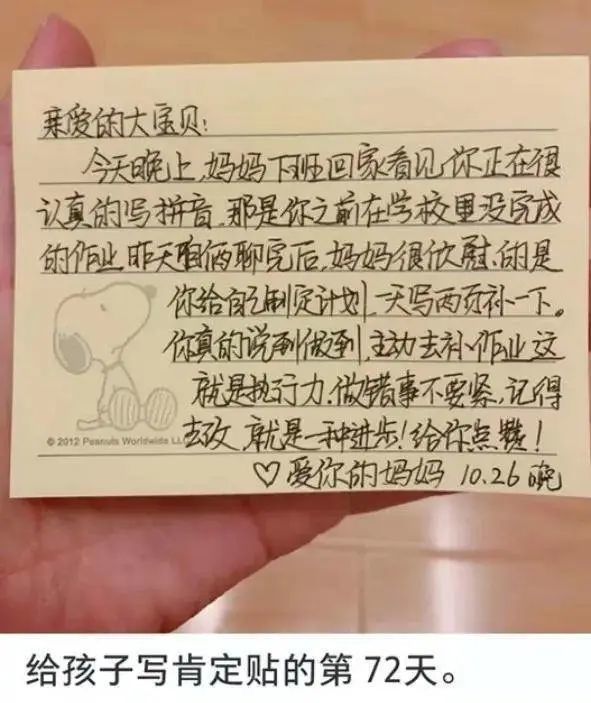 亲爱的大宝贝：
今天晚上，妈妈下班回家看见你正在很
认真的写拼音，那是你之前在学校里没完成
的作业，昨天咱俩聊完后，妈妈很欣慰的是
你给自己制定计划，一天写两页补一下。
你真的说到做到，主动去补作业这
就是执行力，做错事不要紧，记得
去改，就是一种进步！给你点赞！
© 2012 Peanuts Worldwide LLC
♡爱你的妈妈 10.26晚
给孩子写肯定贴的第 72天。